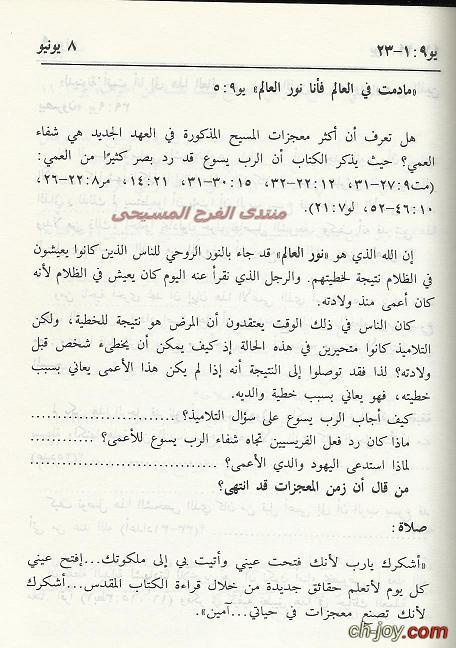 يو٩ : ١-٢٣
٨ يونيو
«مادمت في العالم فأنا نور العالم» يو٩ : ٥
هل تعرف أن أكثر معجزات المسيح المذكورة في العهد الجديد هي شفاء
العمي؟ حيث يذكر الكتاب أن الرب يسوع قد رد بصر كثيرًا من العمي:
(مت٩ : ٢٧-٣١، ١٢ : ٢٢-٣٢، ١٥ : ٣٠-٣١، ٢١ : ١٤، مر٨ : ٢٢-٢٦،
١٠ : ٤٦-٥٢، لو٧ : ٢١).
منتدى الفرح المسيحى
إن الله الذي هو «نور العالم» قد جاء بالنور الروحي للناس الذين كانوا يعيشون
في الظلام نتيجة لخطيتهم. والرجل الذي نقرأ عنه اليوم كان يعيش في الظلام لأنه
كان أعمى منذ ولادته.
كان الناس في ذلك الوقت يعتقدون أن المرض هو نتيجة للخطية، ولكن
التلاميذ كانوا متحيرين في هذه الحالة إذ كيف يمكن أن يخطىء شخص قبل
ولادته؟ لذا فقد توصلوا إلى النتيجة أنه إذا لم يكن هذا الأعمى يعاني بسبب
خطيته، فهو يعاني بسبب خطية والديه.
كيف أجاب الرب يسوع على سؤال التلاميذ؟ ....................
ماذا كان رد فعل الفريسيين تجاه شفاء الرب يسوع للأعمى؟ ............
لماذا استدعى اليهود والدي الأعمى؟ ............................
من قال أن زمن المعجزات قد انتهى؟
صلاة :
«أشكرك يارب لأنك فتحت عيني وأتيت بي إلى ملكوتك...إفتح عيني
كل يوم لأتعلم حقائق جديدة من خلال قراءة الكتاب المقدس...أشكرك
لأنك تصنع معجزات في حياتي...آمين».
ch-joy.com